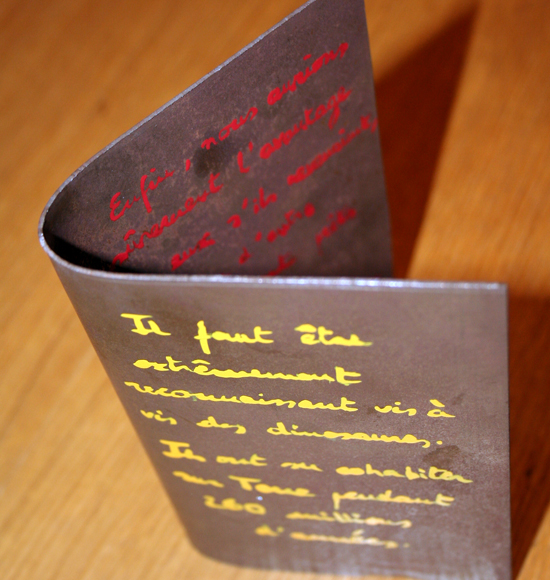 Enfin, nous aurions
sûrement l'avantage
aux
d'
Il faut être
extrêmement
reconnaissant vis à
vis des dinosaures.
Ils ont su cohabiter
sur Terre pendant
260 millions
d'années.